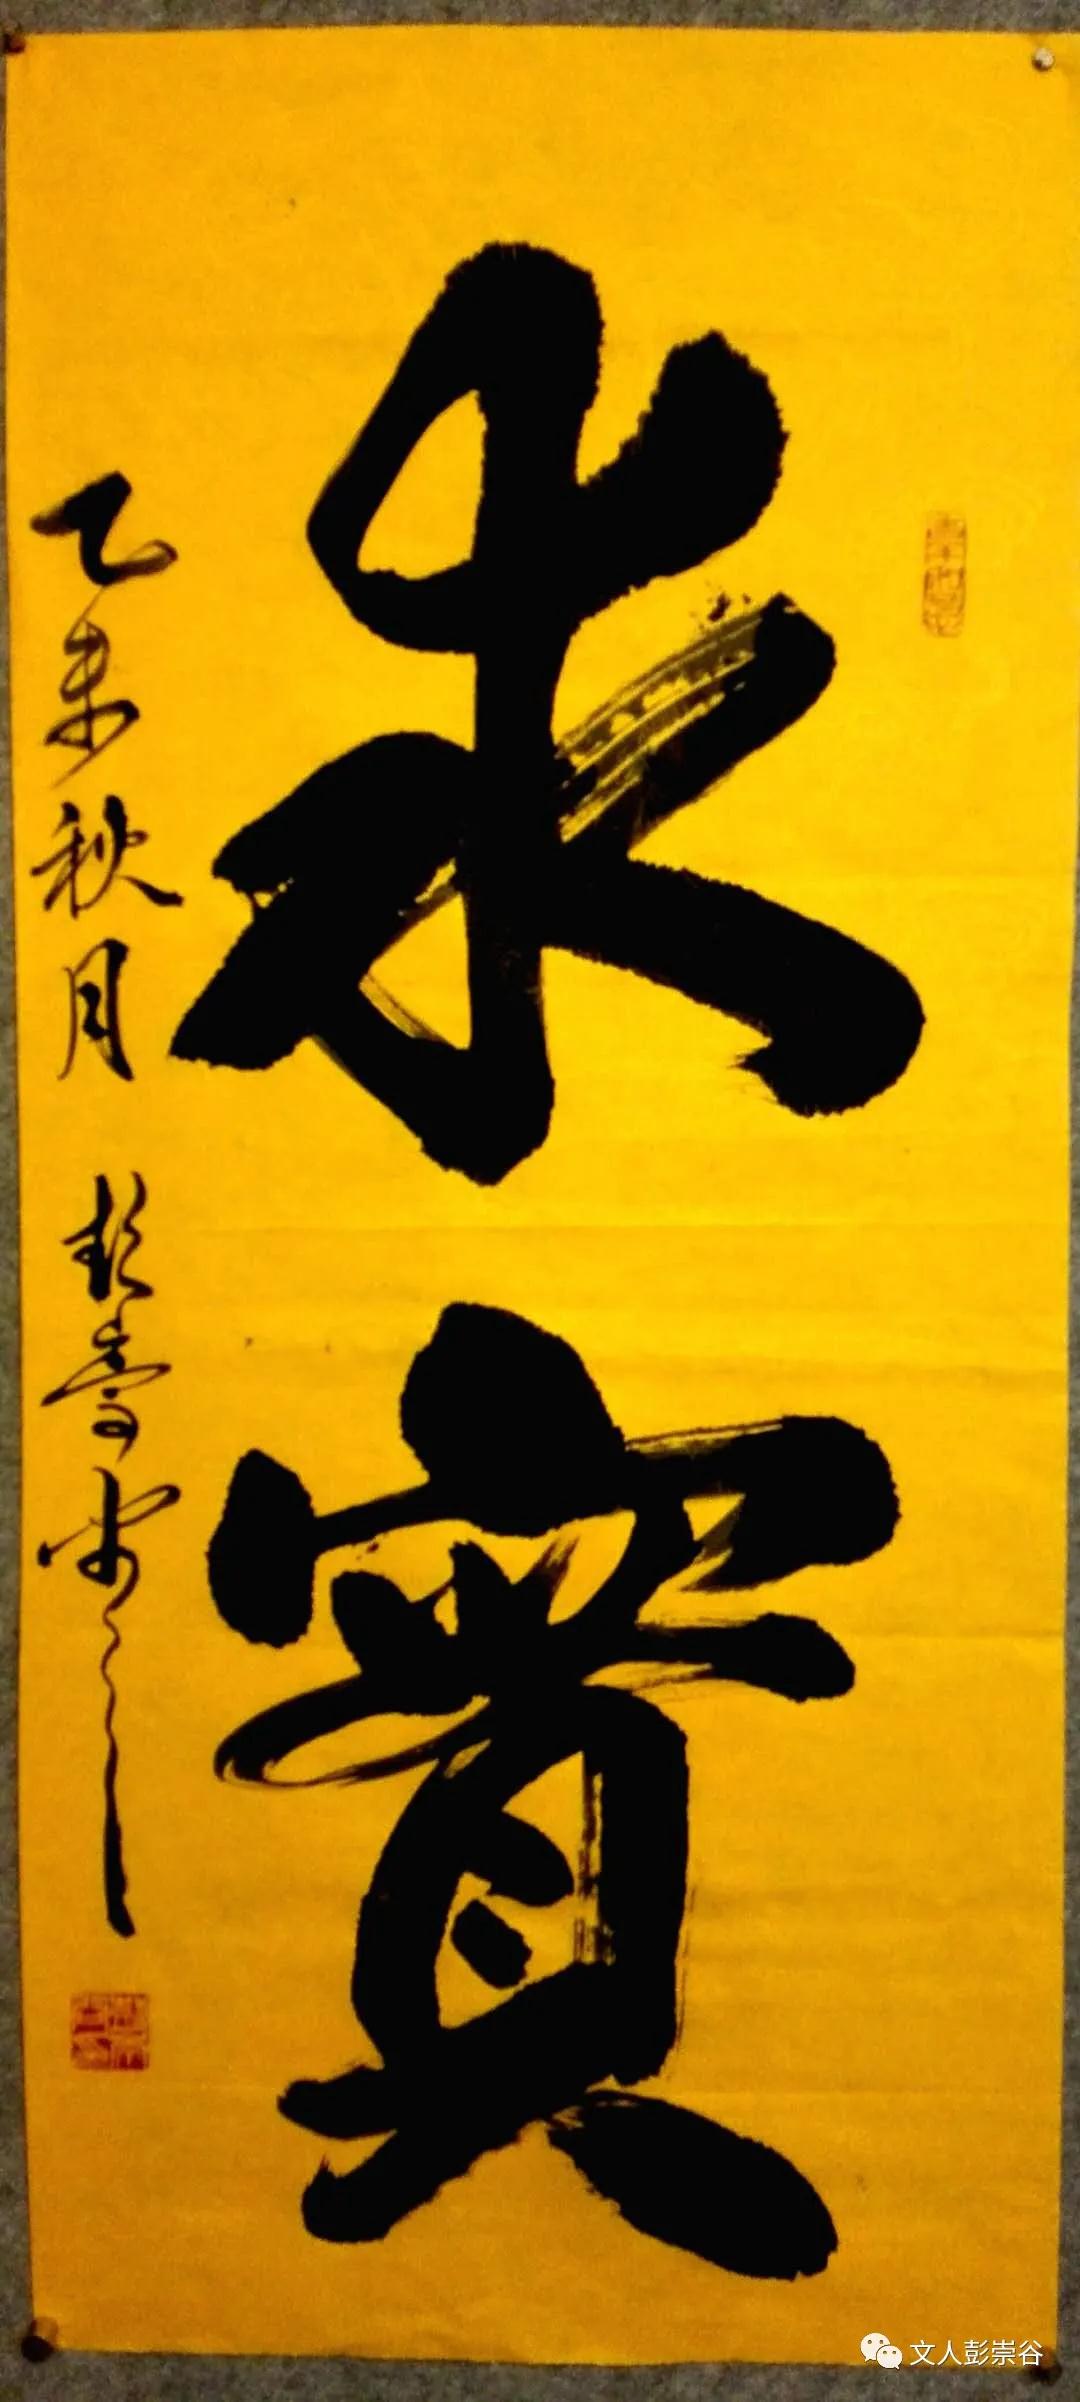 求實
乙未秋月 彭崇谷
文人彭崇谷